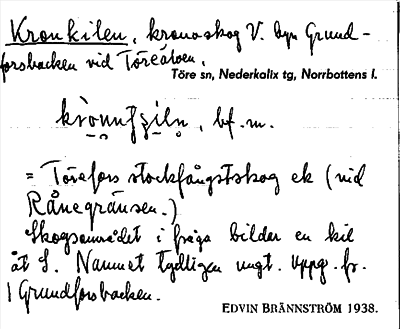 Kronkilen, kronoskog V. byn Grund-
forsbacken vid Töreälven.
Töre sn, Nederkalix tg, Norrbottens l.
bf. m.
= Törefors stockfångstskog ek (vid
Rånegränsen.)
Skogsområdet i fråga bildar en kil
åt S. Namnet tydligen ungt. Uppg. fr.
Grundforsbacken.
EDVIN BRÄNNSTRÖM 1938.